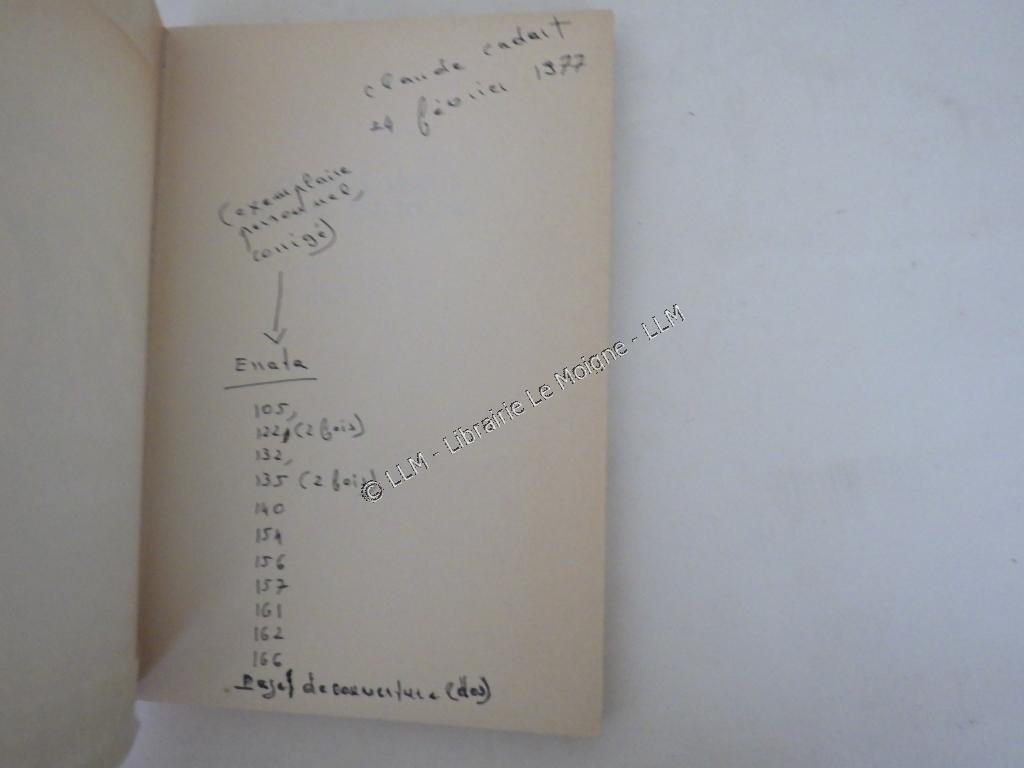 claude cadart
24 février 1977
(exemplaire
personnel,
corrigé)
Errata
105,
122, (2 fois)
132,
135 (2 fois)
140
154
156
157
161
162
166
de couverture (dos)
© LLM - Librairie Le Moigne - LLM